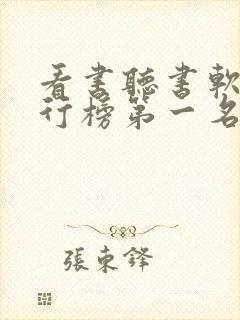 看書聽書軟
行榜第一名
張東鋒